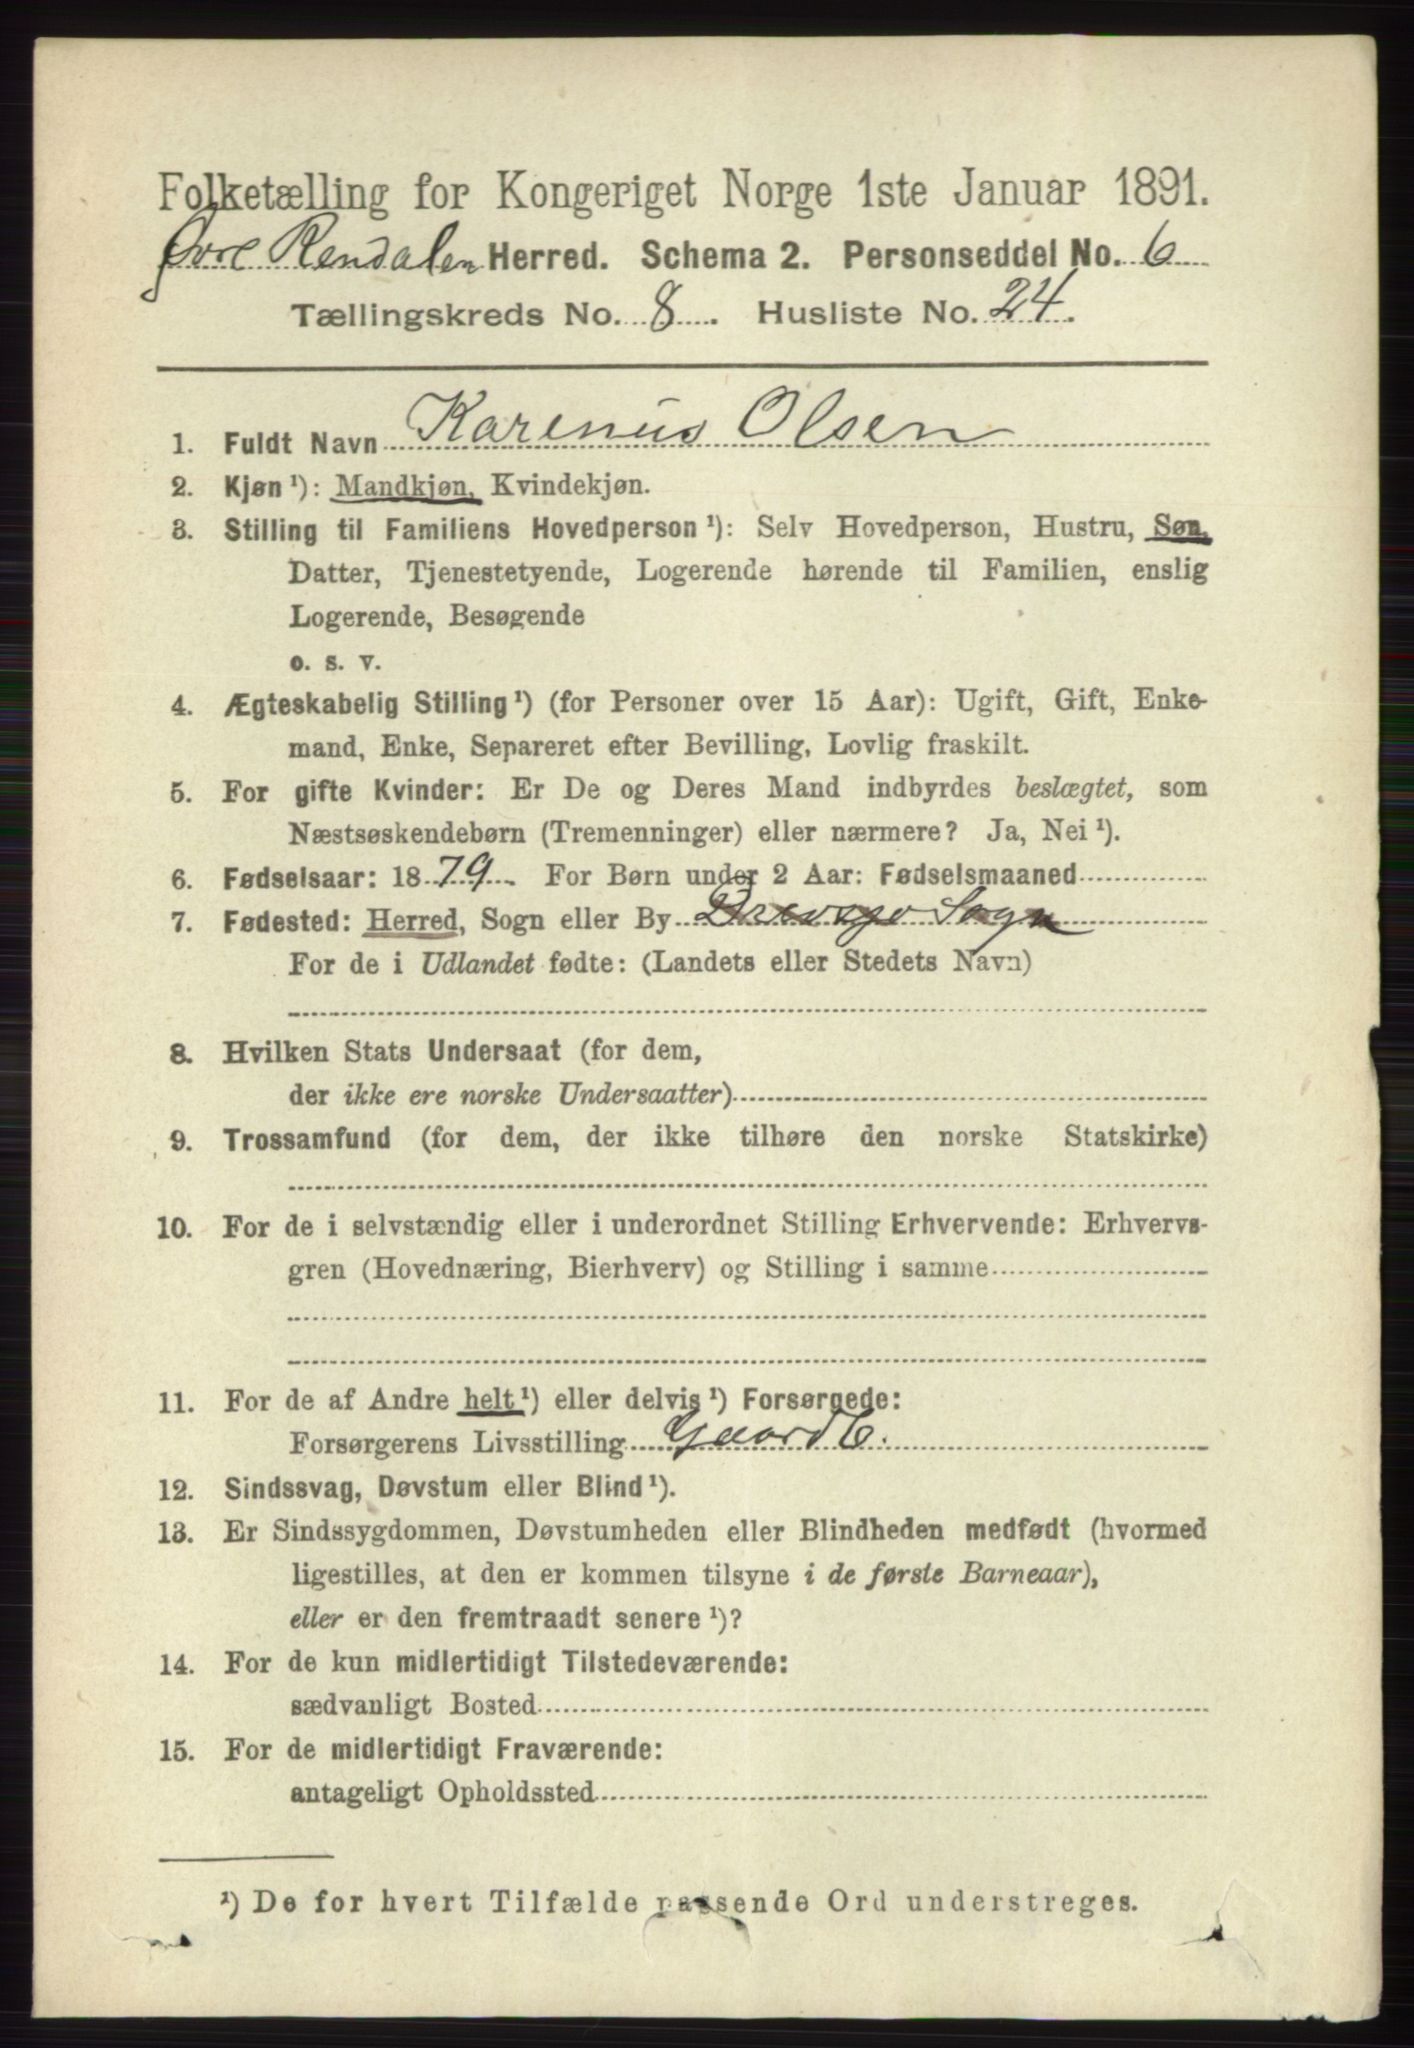 Folketælling for Kongeriget Norge 1ste Januar 1891.
Øvre Rendalen Herred. Schema 2. Personseddel No. 6
Tællingskreds No. 8. Husliste No. 24.
1. Fuldt Navn Karenus Olsen
2. Kjøn ¹): Mandkjøn, Kvindekjøn.
3. Stilling til Familiens Hovedperson ¹): Selv Hovedperson, Hustru, Søn,
Datter, Tjenestetyende, Logerende hørende til Familien, enslig
Logerende, Besøgende
o. s. v.
4. Ægteskabelig Stilling ¹) (for Personer over 15 Aar): Ugift, Gift, Enke-
mand, Enke, Separeret efter Bevilling, Lovlig fraskilt.
5. For gifte Kvinder: Er De og Deres Mand indbyrdes beslægtet, som
Næstsøskendebørn (Tremenninger) eller nærmere? Ja, Nei ¹).
6. Fødselsaar: 1879. For Børn under 2 Aar: Fødselsmaaned
7. Fødested: Herred, Sogn eller By Drevsjø Sogn
For de i Udlandet fødte: (Landets eller Stedets Navn)
8. Hvilken Stats Undersaat (for dem,
der ikke ere norske Undersaatter)
9. Trossamfund (for dem, der ikke tilhøre den norske Statskirke)
10. For de i selvstændig eller i underordnet Stilling Erhvervende: Erhvervs-
gren (Hovednæring, Bierhverv) og Stilling i samme
11. For de af Andre helt ¹) eller delvis ¹) Forsørgede:
Forsørgerens Livsstilling Gaardb.
12. Sindssvag, Døvstum eller Blind ¹).
13. Er Sindssygdommen, Døvstumheden eller Blindheden medfødt (hvormed
ligestilles, at den er kommen tilsyne i de første Barneaar),
eller er den fremtraadt senere ¹)?
14. For de kun midlertidigt Tilstedeværende:
sædvanligt Bosted
15. For de midlertidigt Fraværende:
antageligt Opholdssted
¹) De for hvert Tilfælde passende Ord understreges.